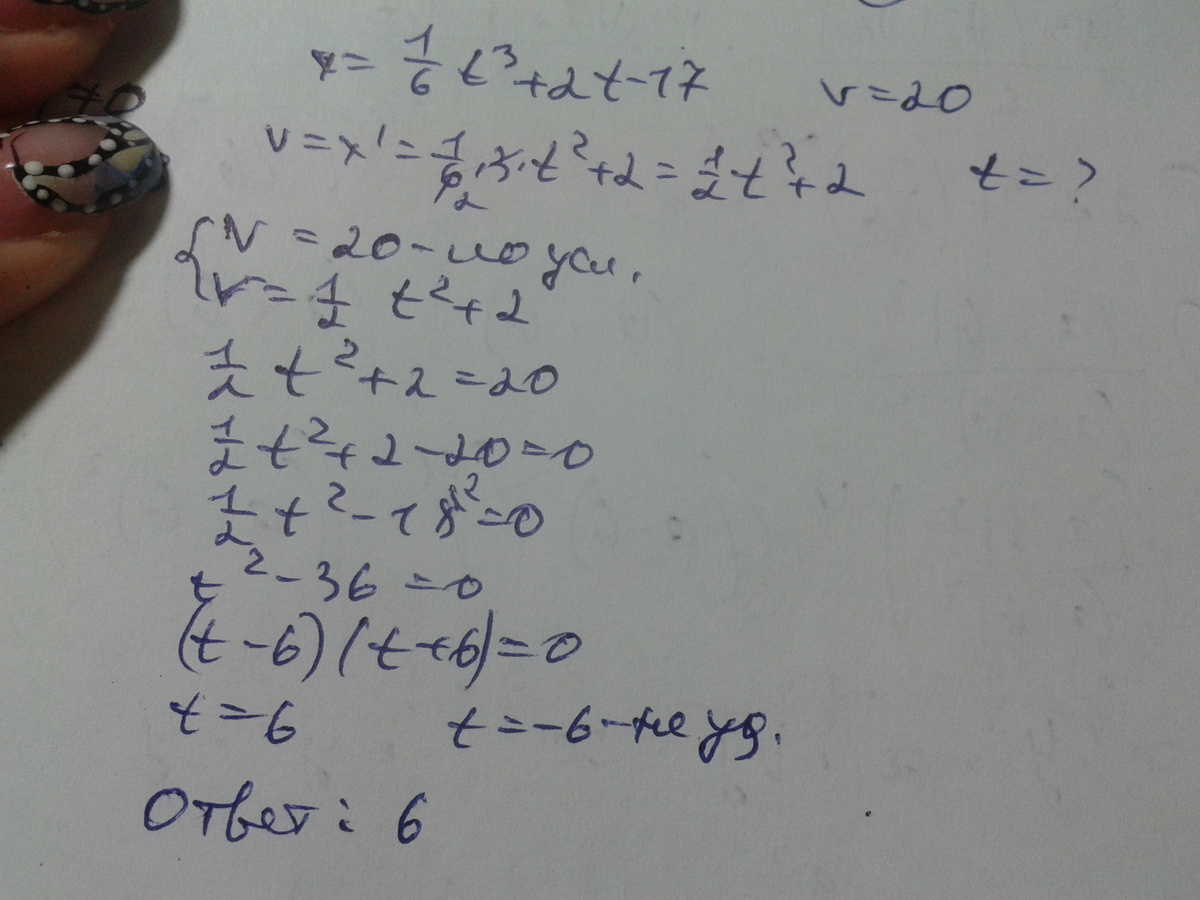 x = 1/6 t³ + 2t - 17 v = 20
v = x' = 1/6 · 3 · t² + 2 = 1/2 t² + 2 t = ?
{ v = 20 - по усл.
v = 1/2 t² + 2
1/2 t² + 2 = 20
1/2 t² + 2 - 20 = 0
1/2 t² - 18 ² = 0
t² - 36 = 0
(t - 6)(t + 6) = 0
t = 6 t = -6 - не уд.
Ответ: 6